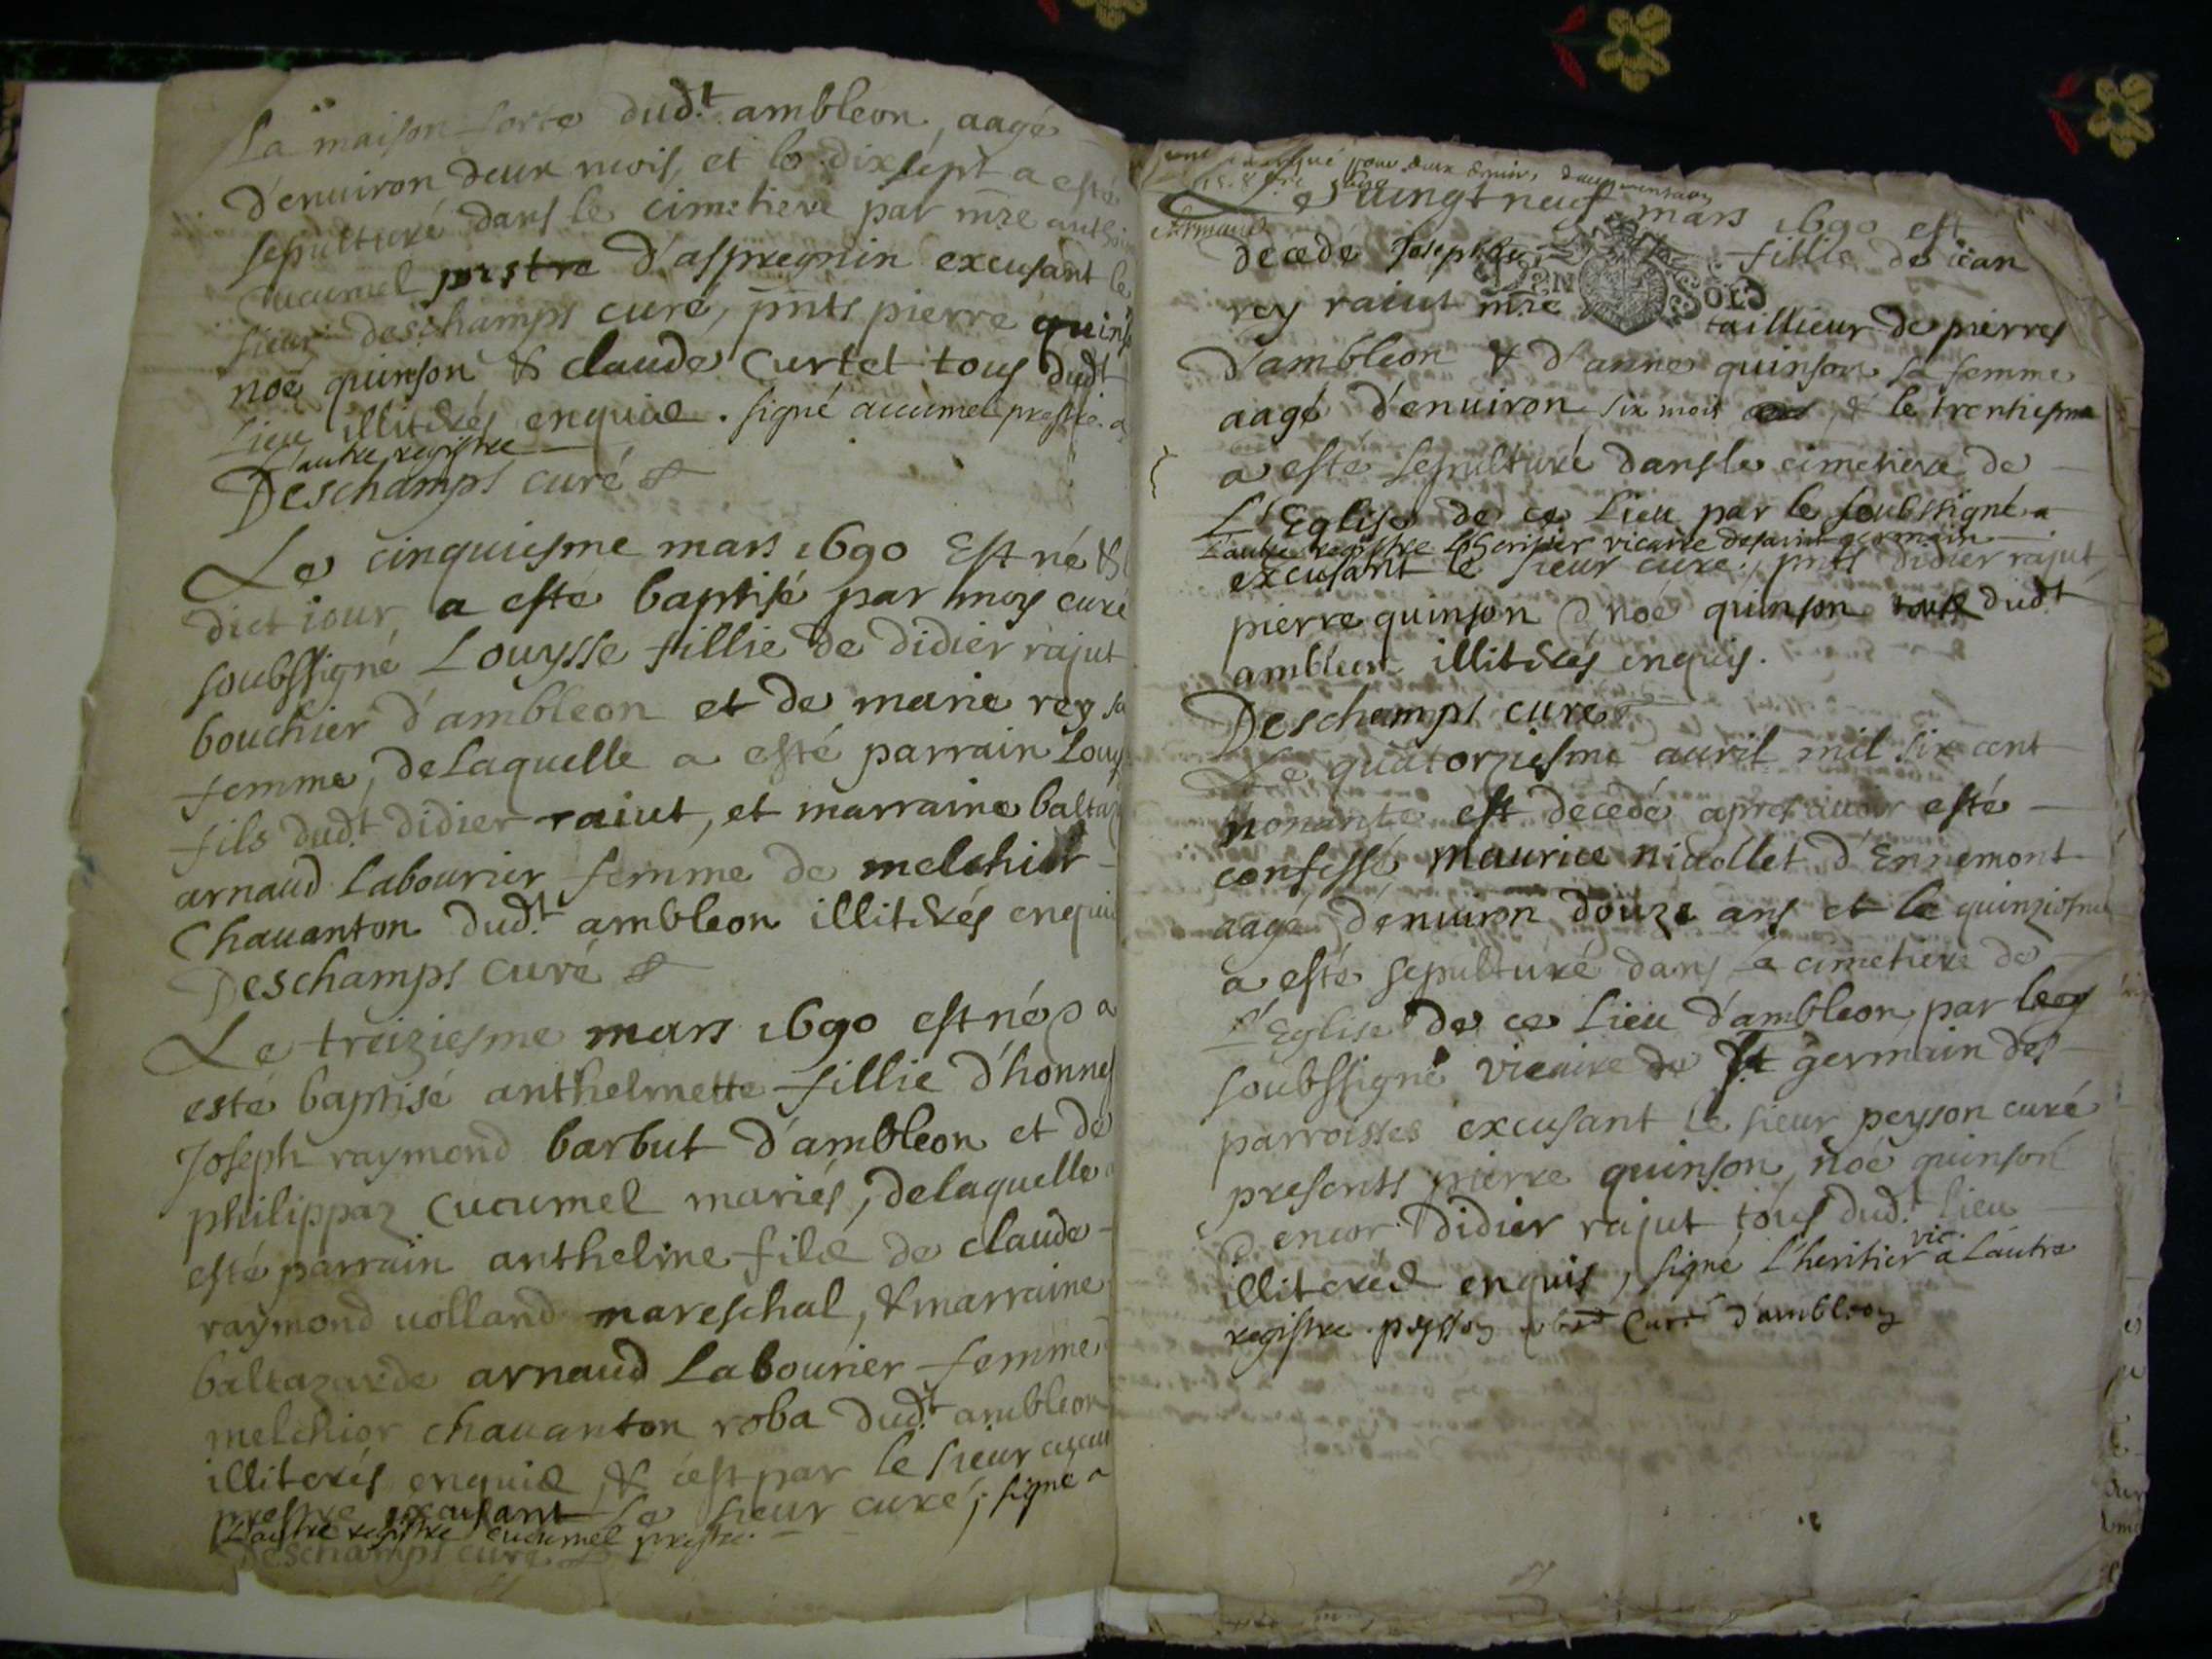 La maison forte dud.t ambleon, aagé
d'enuiron deux mois, et le dixsept a esté
sepulturé dans le cimetiere par mre anth
Cucumel prestre d'aspregnin excusant le
sieur deschamps curé, pnts pierre quins
noé quinson & claude Curtet tous dud.t
Lieu illiterés enquis. signé cucumel prestre a
L'autre registre
Deschamps curé
Le cinquiesme mars 1690 Est né &
dict iour a esté baptisé par moy curé
soubssigné Louysse fillie de didier rajut
bouchier d'ambleon et de marie rey sa
femme, delaquelle a esté parrain Louy
fils dud.t didier raiut, et marraine balta
arnaud Labourier femme de melchior
Chauanton dud.t ambleon illiterés enquis
Deschamps curé
Le treiziesme mars 1690 est né & a
esté baptisé anthelmette fillie d'honnes
Joseph raymond barbut d'ambleon et de
philippaz Cucumel mariés, delaquelle a
esté parrain anthelme fils de claude
raymond uolland mareschal, & marraine
baltazarde arnaud Labourier femme
melchior chauanton roba dud.t ambleon
illiterés enquis, & c'est par le sieur cucu
prestre excusant le sieur curé, signé a
L'autre registre cucumel prestre.
Deschamps curé
pour deux
Le uingt neuf mars 1690 est
decedé Josephte fillie de iean
rey raiut mre taillieur de pierres
d'ambleon & d'anne quinson sa femme
aagé d'enuiron six mois & le trentiesme
a esté sepulturé dans le cimetiere de
L'Eglise de ce Lieu par le soubssigné a
L'autre registre Lheritier vicaire de saint germain
excusant le sieur curé, pnts didier rajut
pierre quinson & noé quinson tous dud.t
ambleon illiterés enquis.
Deschamps curé
Le quatorziesme auril mil six cent
nonante est decedé apres auoir esté
confessé, maurice nicollet d'Ennemont
aagé d'enuiron douze ans et le quinziesme
a esté sepulturé dans le cimetiere de
l'Eglise de ce Lieu d'ambleon, par le
soubssigné vicaire de St germain des
parroisses excusant le sieur peyson curé
presents pierre quinson, noé quinson
& encor didier rajut tous dud.t lieu
illiterés enquis, signé l'heritier vic. a L'autre
registre. peysson Curé d'ambleon